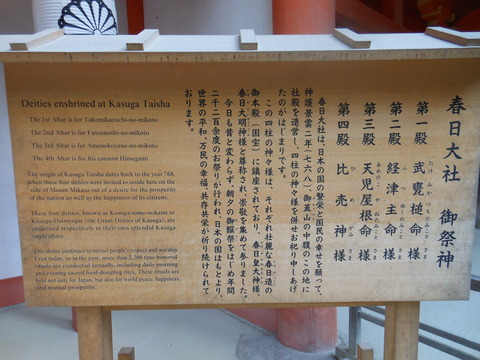 春日大社 御祭神
第一殿 武甕槌命様
たけみかづちのみことさま
第二殿 経津主命様
ふつぬしのみことさま
第三殿 天児屋根命様
あめのこやねのみことさま
第四殿 比売神様
ひめがみさま
春日大社は、日本の国の繁栄と国民の幸せを願って、
神護景雲二年(七六八)御蓋山の中腹のこの地に
社殿を造営し、四柱の神々様を併せお祀り申しあげ
たのがはじまりです。
この四柱の神々様は、それぞれ壮麗な春日造の
御本殿(国宝)に鎮座されており、春日皇大神様、
春日大明神様と尊称され、崇敬を集めて参りました。
今日も昔と変わらず、朝夕の御饌祭をはじめ年間
二千二百余度のお祭りが行われ、日本の国はもとより、
世界の平和、万民の幸福、共存共栄が祈り続けられて
おります。
Deities enshrined at Kasuga Taisha
The 1st Altar is for Takemikazuchi-no-mikoto
The 2nd Altar is for Futsunushi-no-mikoto
The 3rd Altar is for Amenokoyane-no-mikoto
The 4th Altar is for his consort Himegami
The origin of Kasuga Taisha dates back to the year 768,
when these four deities were invited to reside here on the
side of Mount Mikasa out of a desire for the prosperity
of the nation as well as the happiness of its citizens.
These four deities, known as Kasuga-sume-ookami or
Kasuga-Daimyojin (the Great Deities of Kasuga), are
enshrined respectively in their own splendid Kasuga
style altars.
This shrine continues to attract people's respect and worship.
Even today, as in the past, more than 2,200 time-honored
rituals are conducted annually, including daily morning
and evening sacred food-donating rites. These rituals are
held not only for Japan, but also for world peace, happiness,
and mutual prosperity.